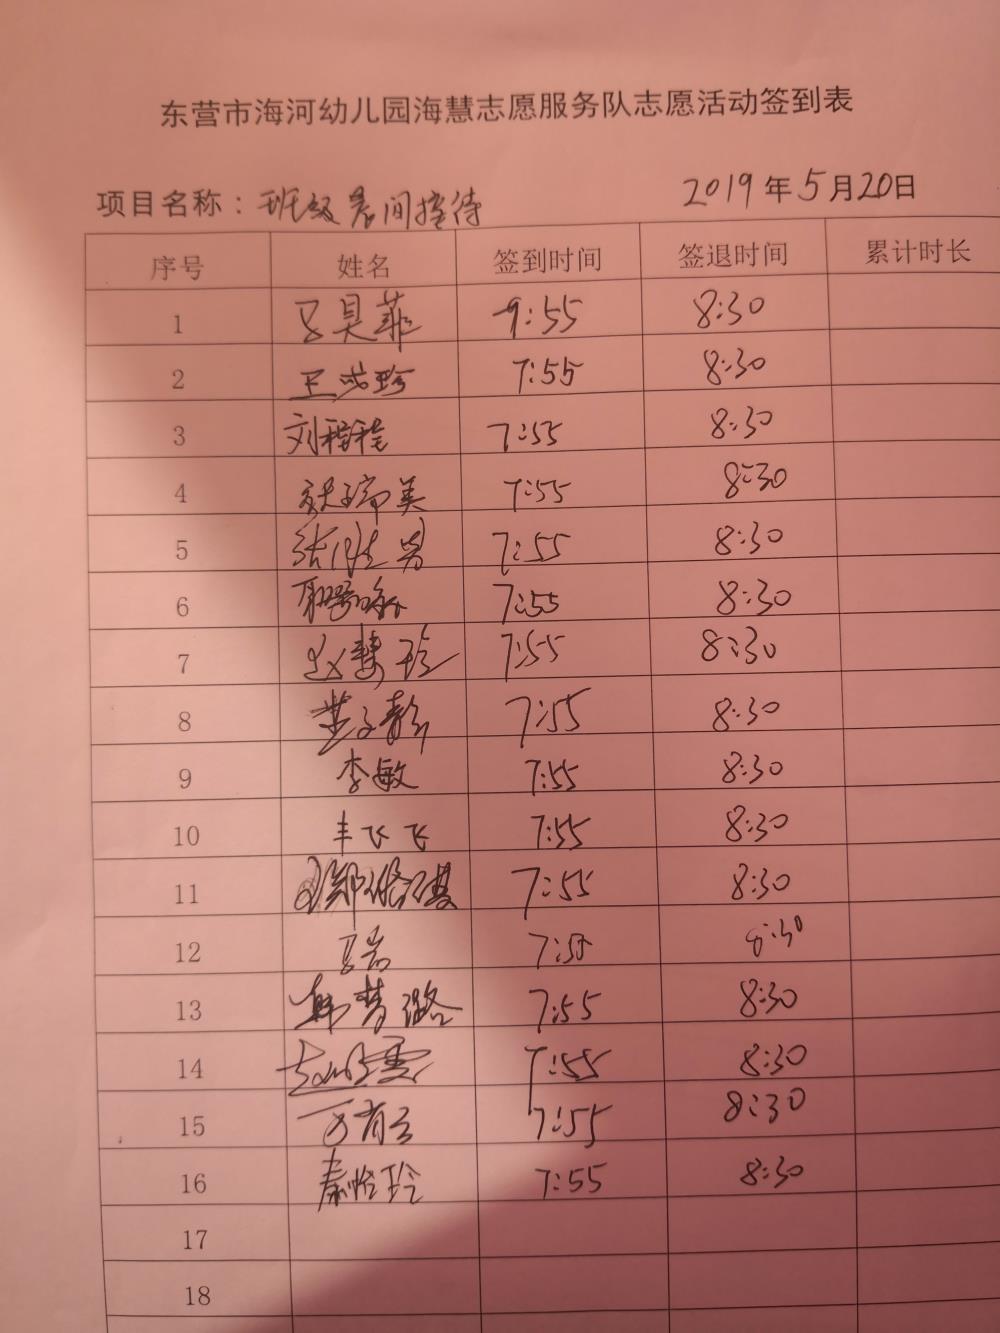 东营市海河幼儿园海慧志愿服务队志愿活动签到表
项目名称：班级晨间接待 2019年5月20日
序号 姓名 签到时间 签退时间 累计时长
1 9:55 8:30
2 王 珍 7:55 8:30
3 刘程程 7:55 8:30
4 美 7:55 8:30
5 7:55 8:30
6 7:55 8:30
7 赵慧玲 7:55 8:30
8 7:55 8:30
9 李敏 7:55 8:30
10 丰飞飞 7:55 8:30
11 郑 7:55 8:30
12 7:55 8:30
13 韩梦璐 7:55 8:30
14 7:55 8:30
15 7:55 8:30
16 秦怡玲 7:55 8:30
17
18